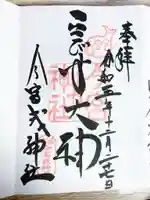 奉拝
令和五年十二月二十七日
ゑびす大神
今宮戎神社